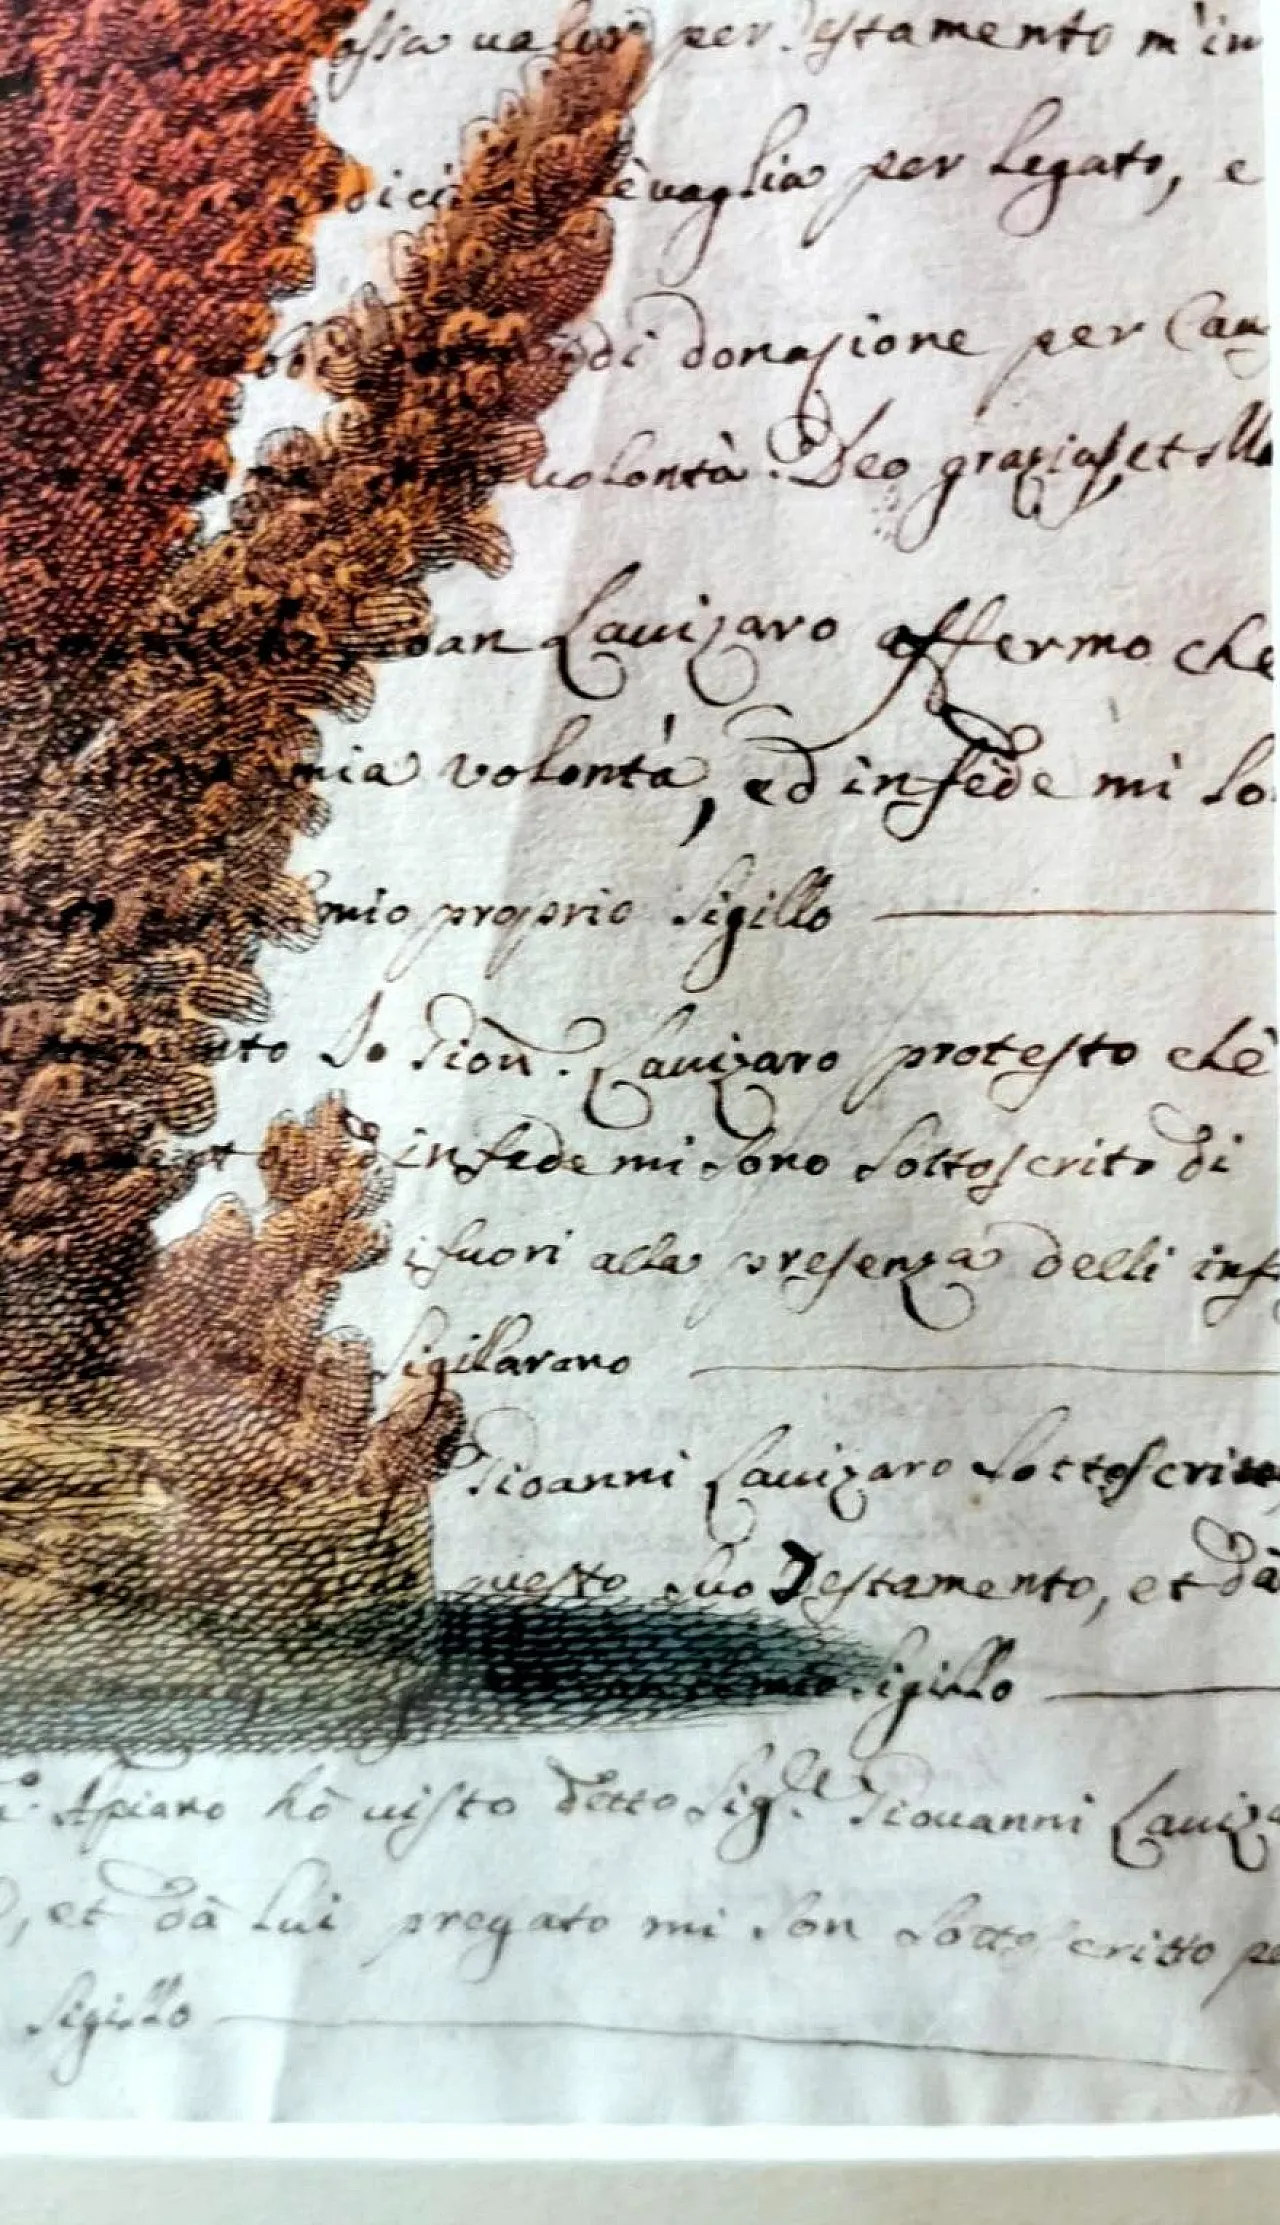 ossia ualer per Testamento m'in
dici uaglia per Legato, e
di donazione per Cau
uolontà. Deo grazias, et
Lauizaro affermo che
mia volontà, ed in fede mi so
mio proprio Sigillo
Io Gioan. Lauizaro protesto che
in fede mi sono sottoscrito di
fuori alla presenza delli inf
Sigillarano
Gioanni Lauizaro sottoscriue
questo suo Testamento, et dà
mio Sigillo
Apiano hò uisto detto Sig.re Giouanni Lauiza
, et dà Lui pregato mi son sottoscritto pe
Sigillo